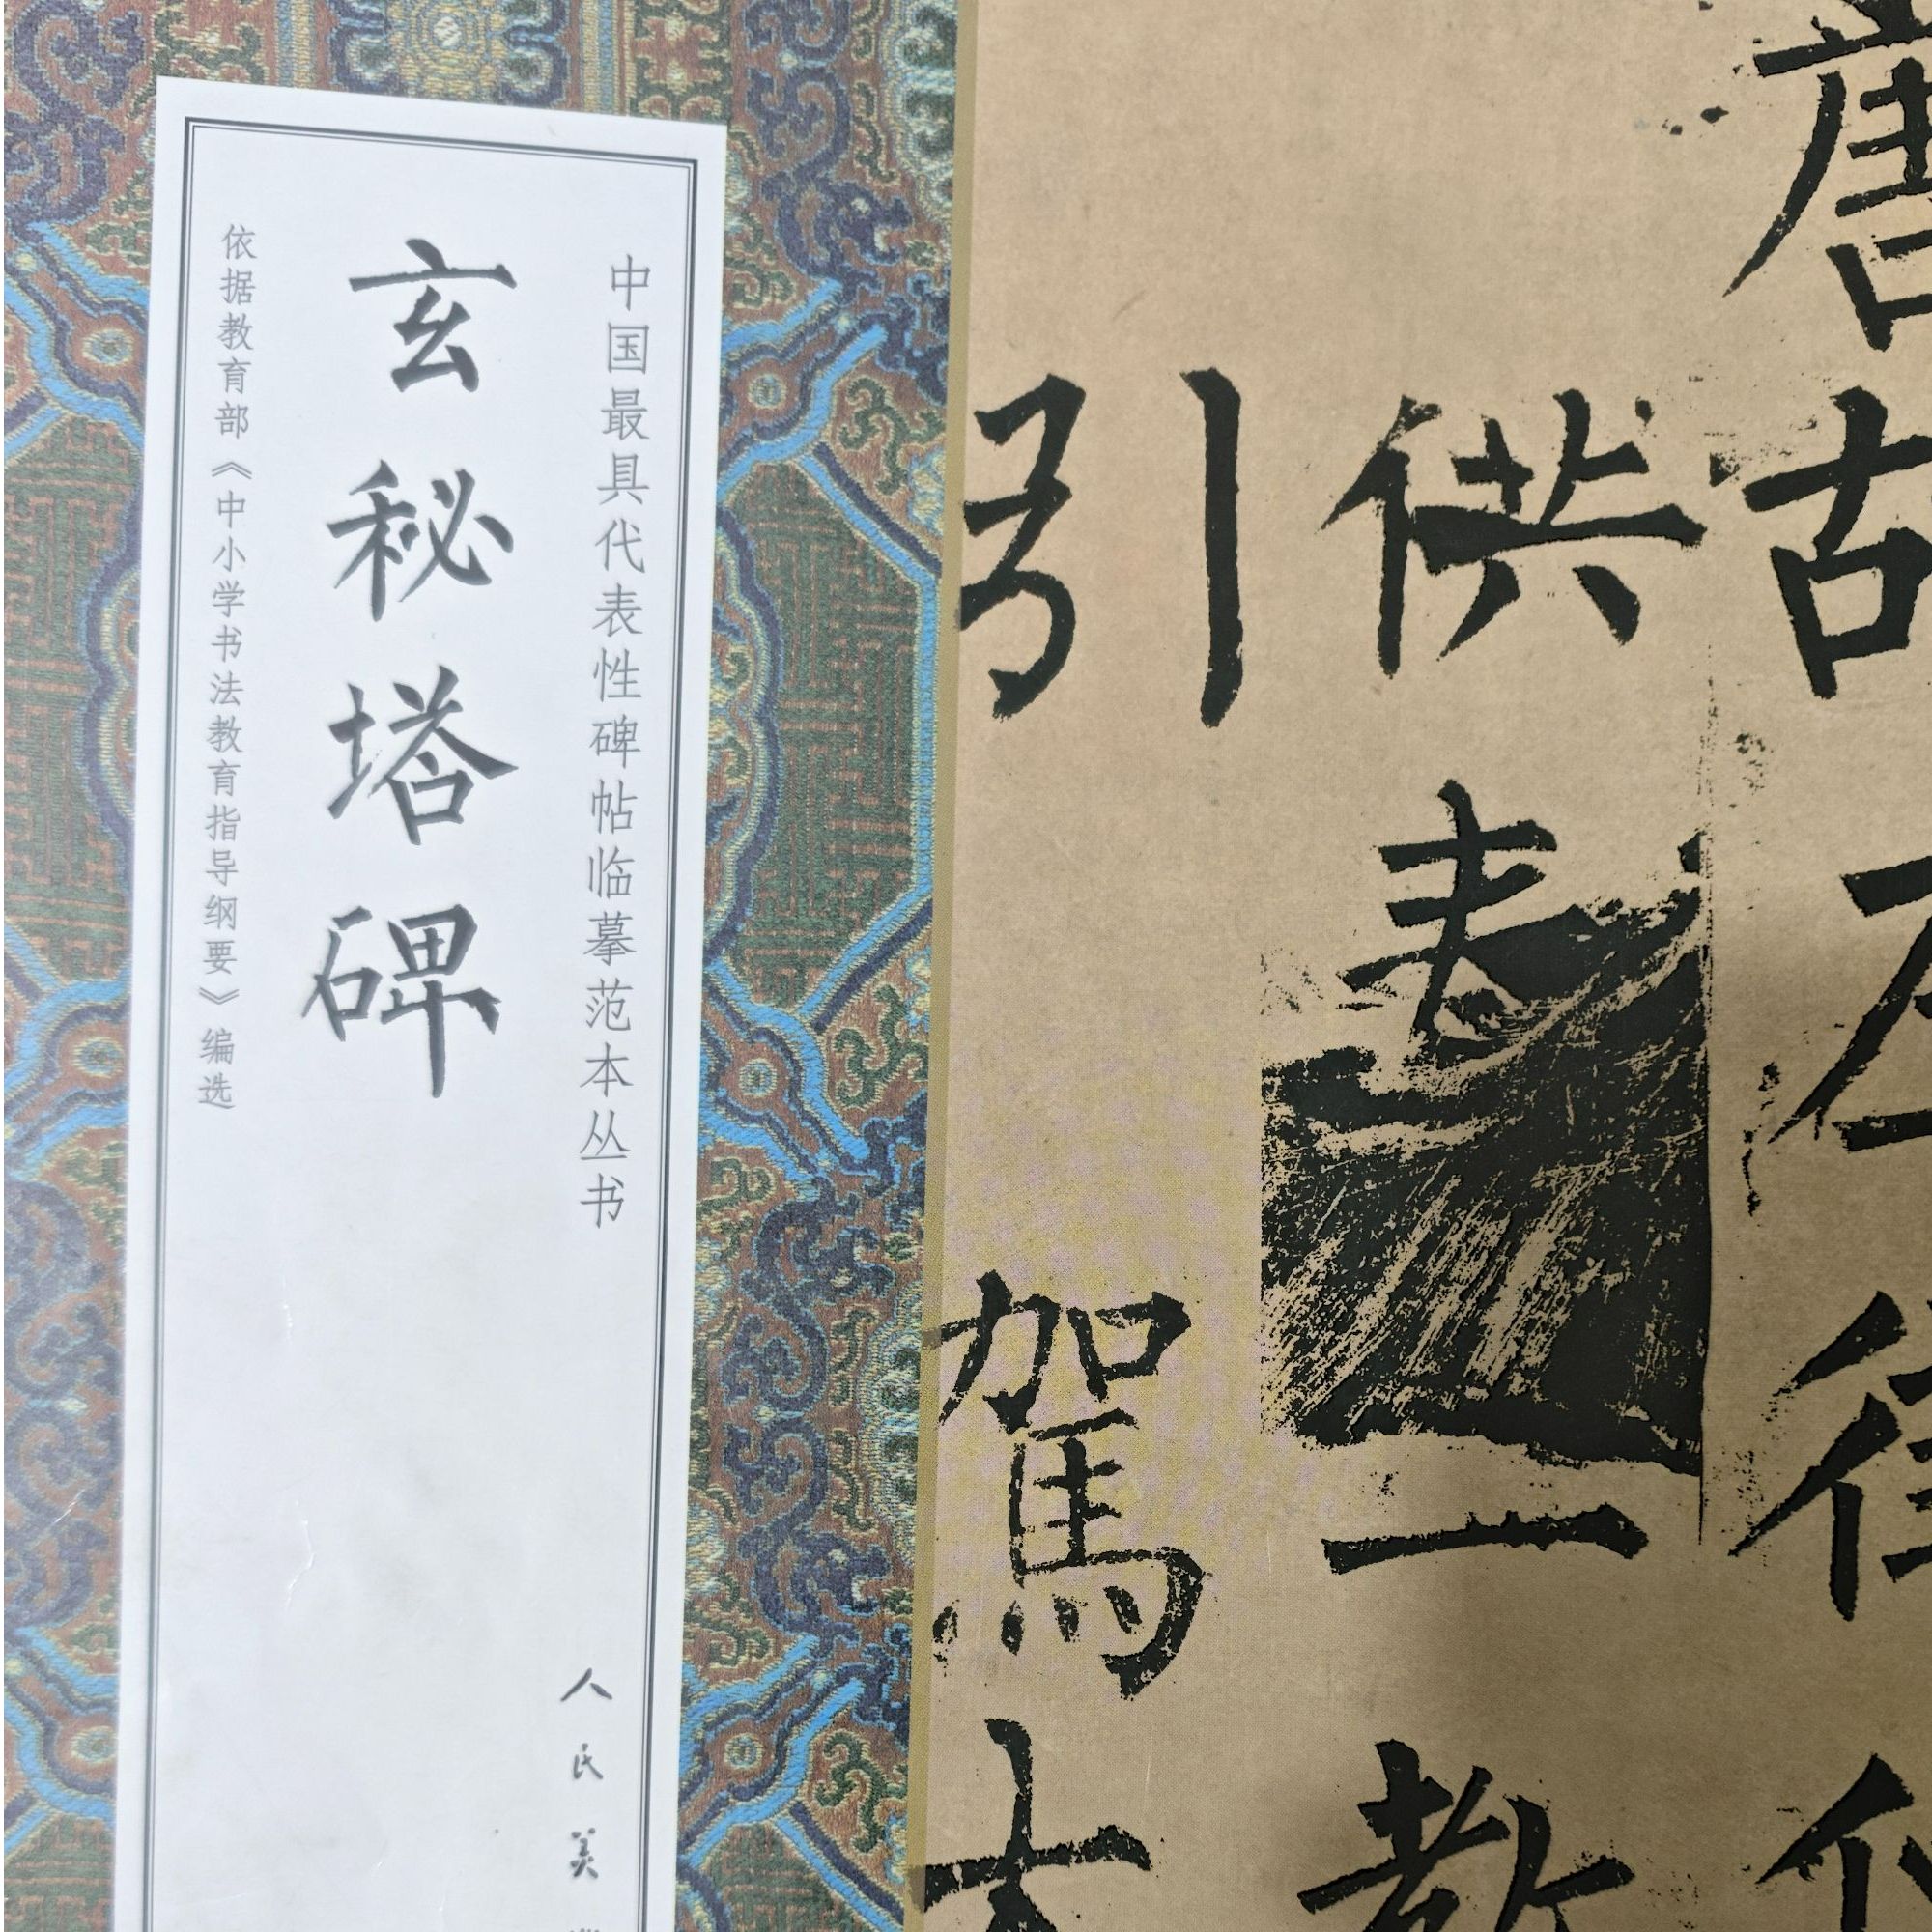 中国最具代表性碑帖临摹范本丛书
玄秘塔碑
依据教育部《中小学书法教育指导纲要》编选
人民美
唐故左街
供表一教
引駕大